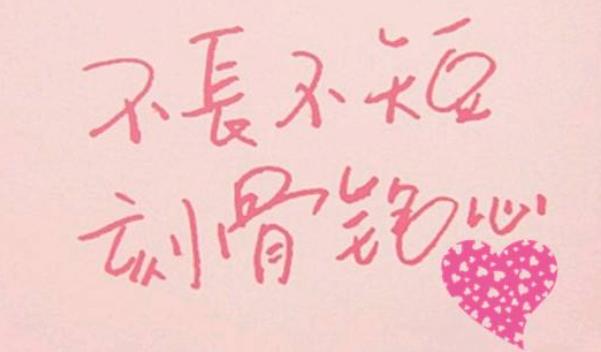 不長不短
刻骨铭心